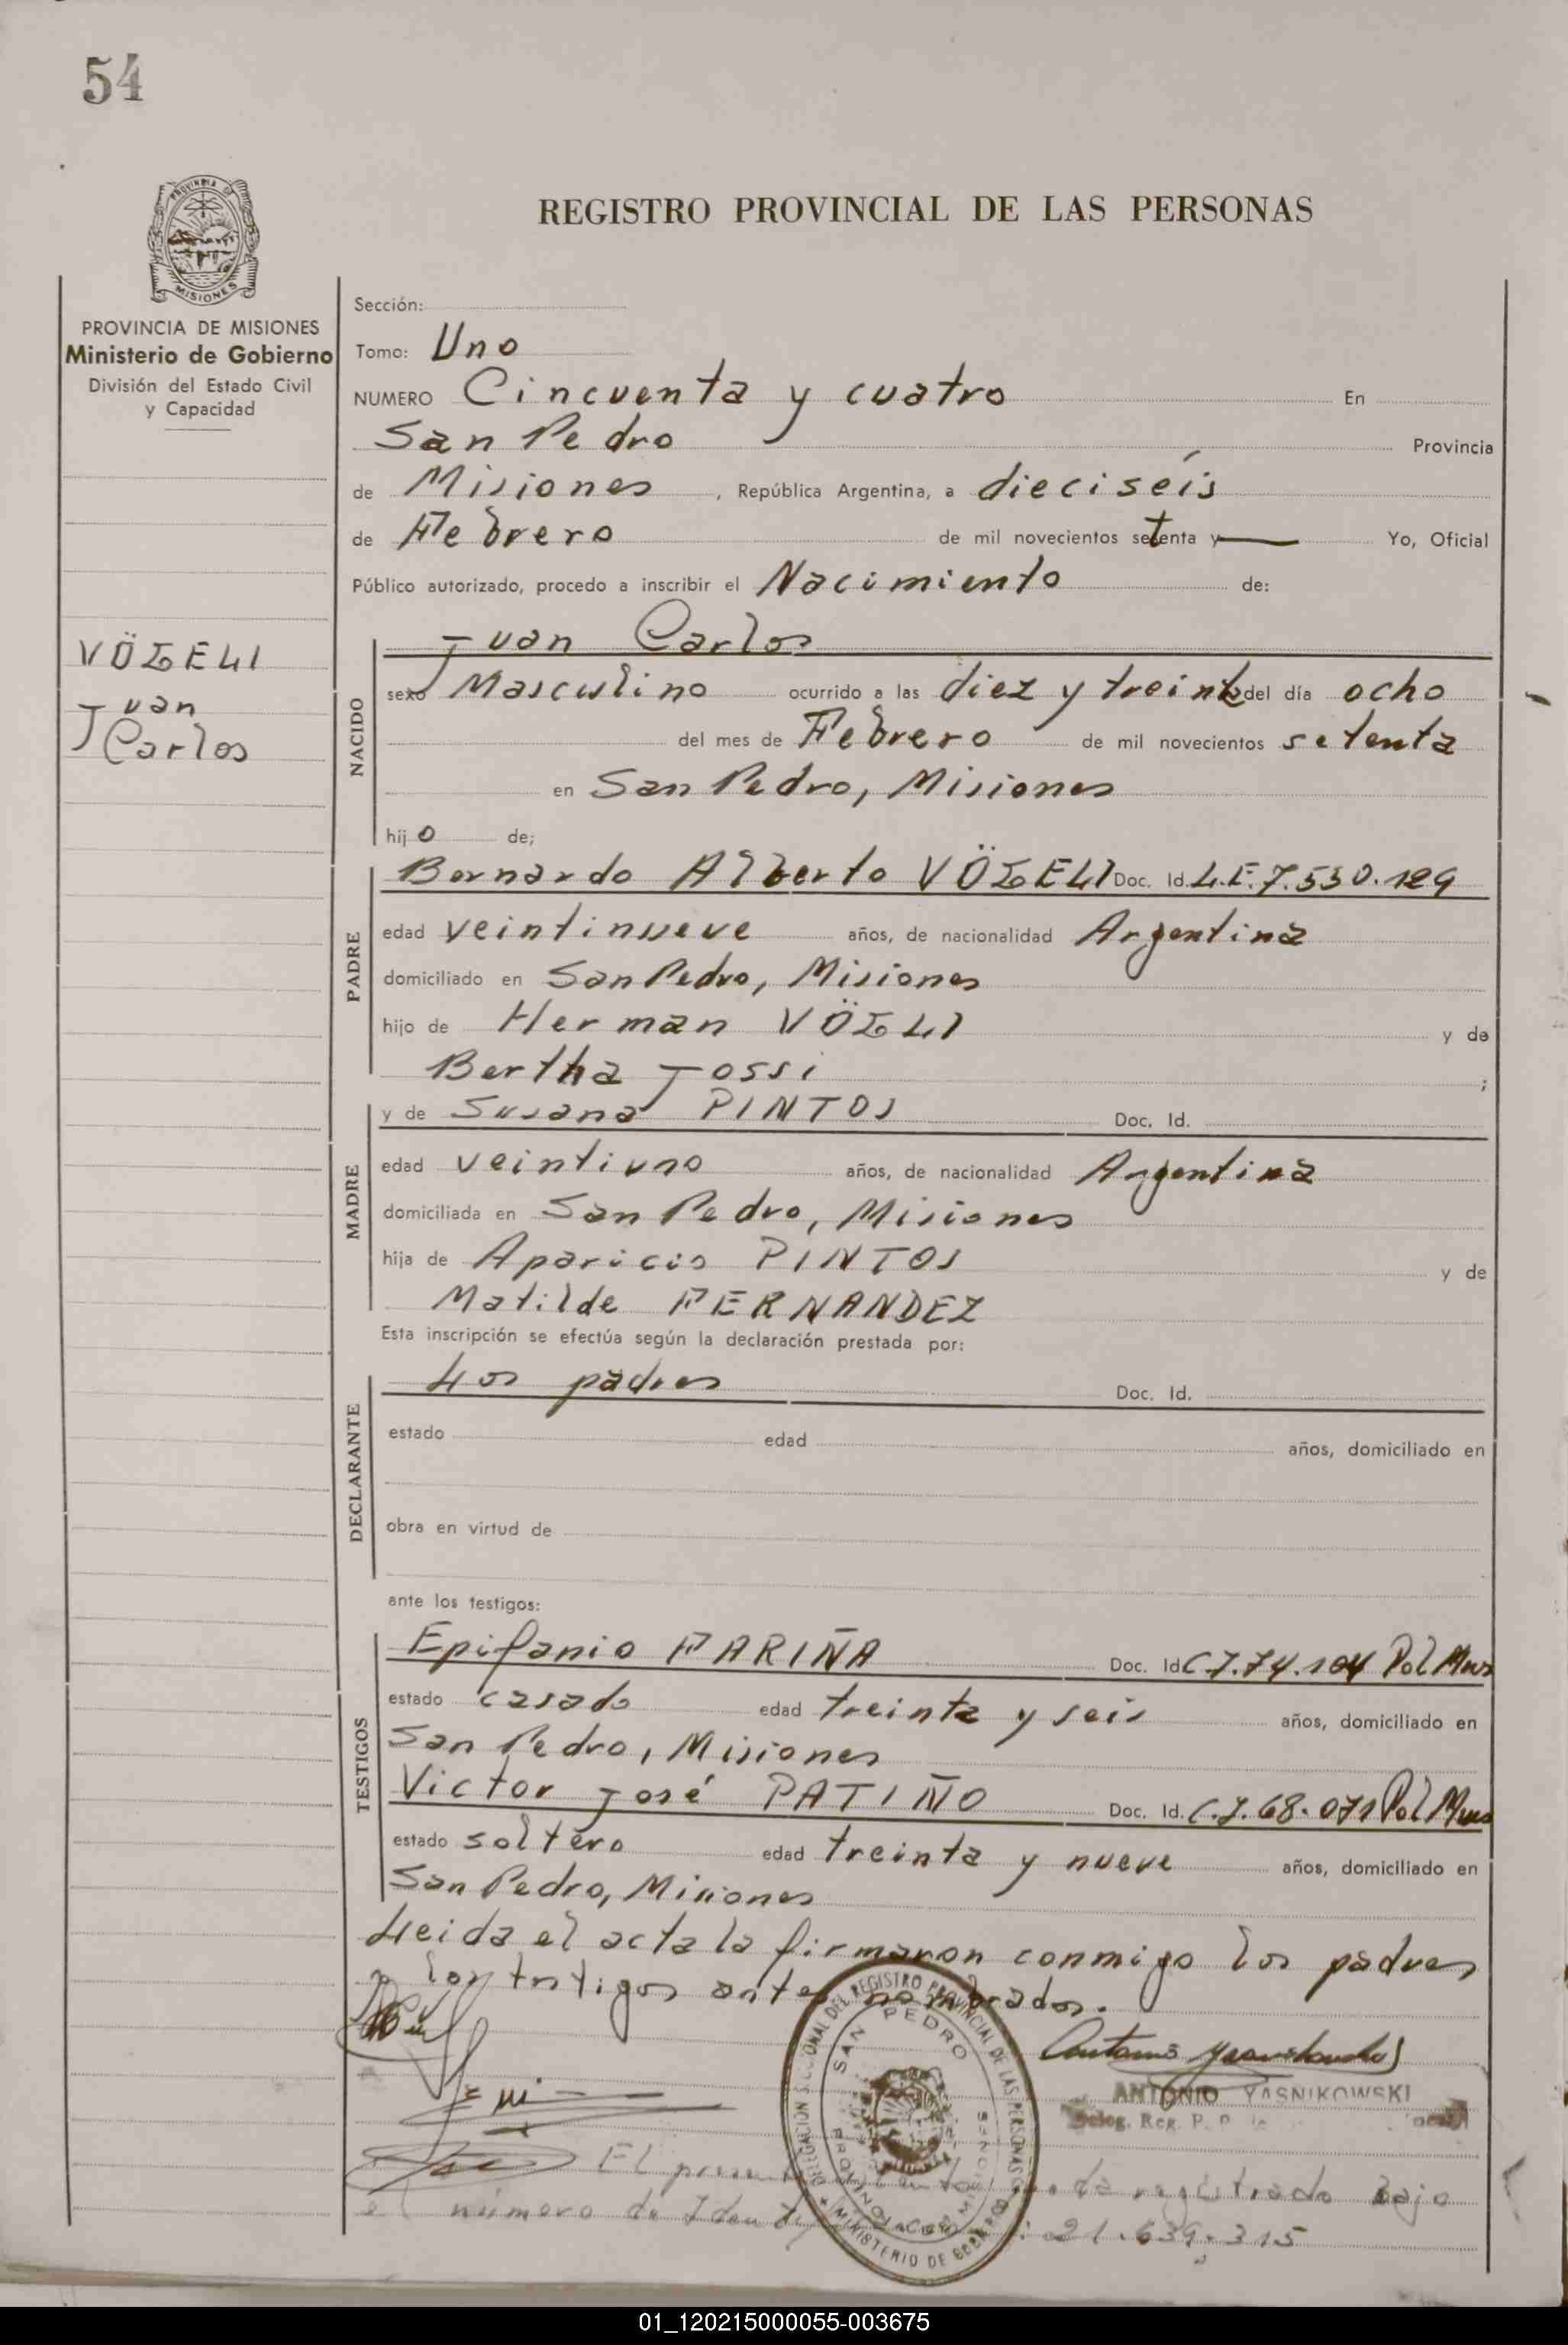 54
REGISTRO PROVINCIAL DE LAS PERSONAS
MISIONES
PROVINCIA DE MISIONES
Ministerio de Gobierno
División del Estado Civil
y Capacidad
VÖGELI
Juan
Carlos
Sección:
Tomo: Uno
NUMERO Cincuenta y cuatro En
San Pedro Provincia
de Misiones, República Argentina, a dieciséis
de Febrero de mil novecientos setenta y — Yo, Oficial
Público autorizado, procedo a inscribir el Nacimiento de:
NACIDO
Juan Carlos
sexo Masculino ocurrido a las diez y treinta del día ocho
del mes de Febrero de mil novecientos setenta
en San Pedro, Misiones
hijo de;
PADRE
Bernardo Alberto VÖGELI Doc. Id. L.E. 7.530.129
edad veintinueve años, de nacionalidad Argentina
domiciliado en San Pedro, Misiones
hijo de Herman VÖGLI y de
Bertha Jossi ;
MADRE
y de Susana PINTOS Doc. Id.
edad veintiuno años, de nacionalidad Argentina
domiciliada en San Pedro, Misiones
hija de Aparicio PINTOS y de
Matilde FERNANDEZ
Esta inscripción se efectúa según la declaración prestada por:
DECLARANTE
Los padres Doc. Id.
estado edad años, domiciliado en
obra en virtud de
ante los testigos:
TESTIGOS
Epifanio FARIÑA Doc. Id C.I. 74.104 Pol Mnes
estado casado edad treinta y seis años, domiciliado en
San Pedro, Misiones
Victor José PATIÑO Doc. Id. C.I. 68.071 Pol Mnes
estado soltero edad treinta y nueve años, domiciliado en
San Pedro, Misiones
Leida el acta la firmaron conmigo los padres
y los testigos antes nombrados.
DELEGACION SECCIONAL DEL REGISTRO PROVINCIAL DE LAS PERSONAS
MINISTERIO DE GOBIERNO
SAN PEDRO
MISIONES
ANTONIO YASNIKOWSKI
Deleg. Reg. P.
El registrado bajo
el número de 21.639.315
01_120215000055-003675